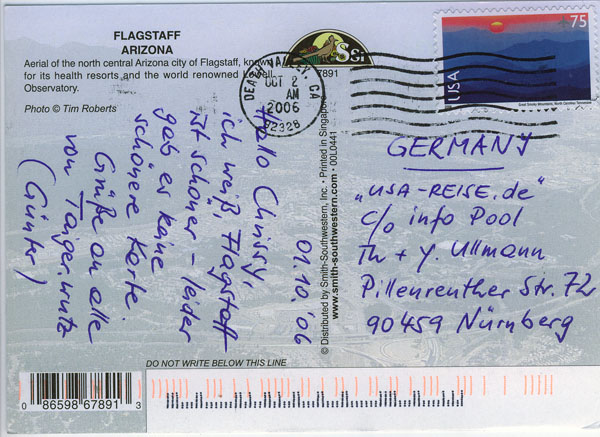 FLAGSTAFF
ARIZONA
Aerial of the north central Arizona city of Flagstaff, known
for its health resorts and the world renowned
Observatory.
Photo © Tim Roberts
67891
DEATH VALLEY CA
OCT 2
AM
2006
92328
75
USA
Great Smoky Mountains, North Carolina/Tennessee
01.10.'06
Hallo Chrissy,
ich weiß, Flagstaff
ist schöner - leider
gab es keine
schönere Karte.
Grüße an alle
von Tangermutz
(Günter)
© Distributed by Smith-Southwestern, Inc. • Printed in Singapore
www.smith-southwestern.com • 00L0441
GERMANY
„USA-REISE.de"
c/o info Pool
Th + Y. Ullmann
Pillenreuther Str. 72
90459 Nürnberg
DO NOT WRITE BELOW THIS LINE
0 86598 67891 3